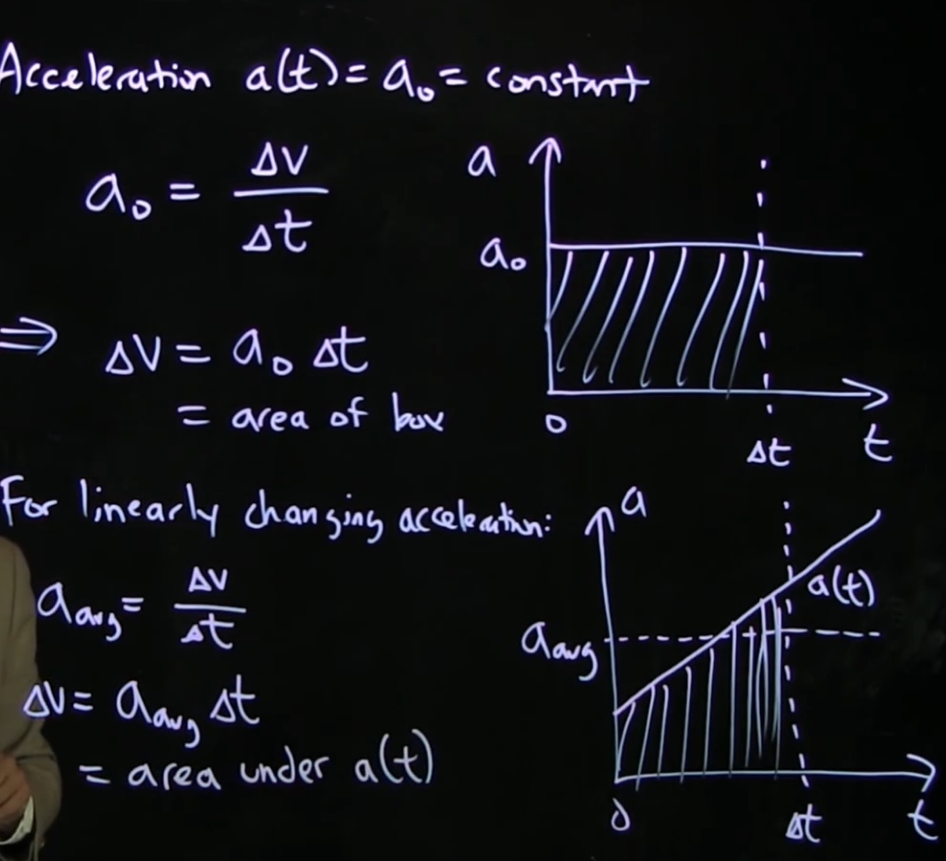 Acceleration a(t) = a₀ = constant
a₀ = ΔV/Δt
a
a₀
0
Δt
t
⇒ ΔV = a₀ Δt
= area of box
For linearly changing acceleration:
a_avg = ΔV/Δt
ΔV = a_avg Δt
= area under a(t)
a
a(t)
a_avg
0
Δt
t